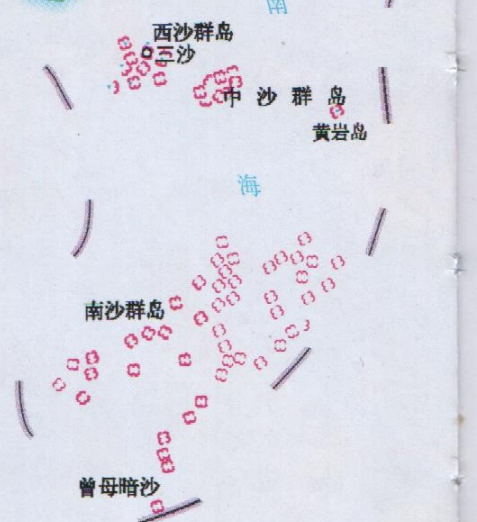 南
西沙群岛
三沙
中沙群岛
黄岩岛
海
南沙群岛
曾母暗沙